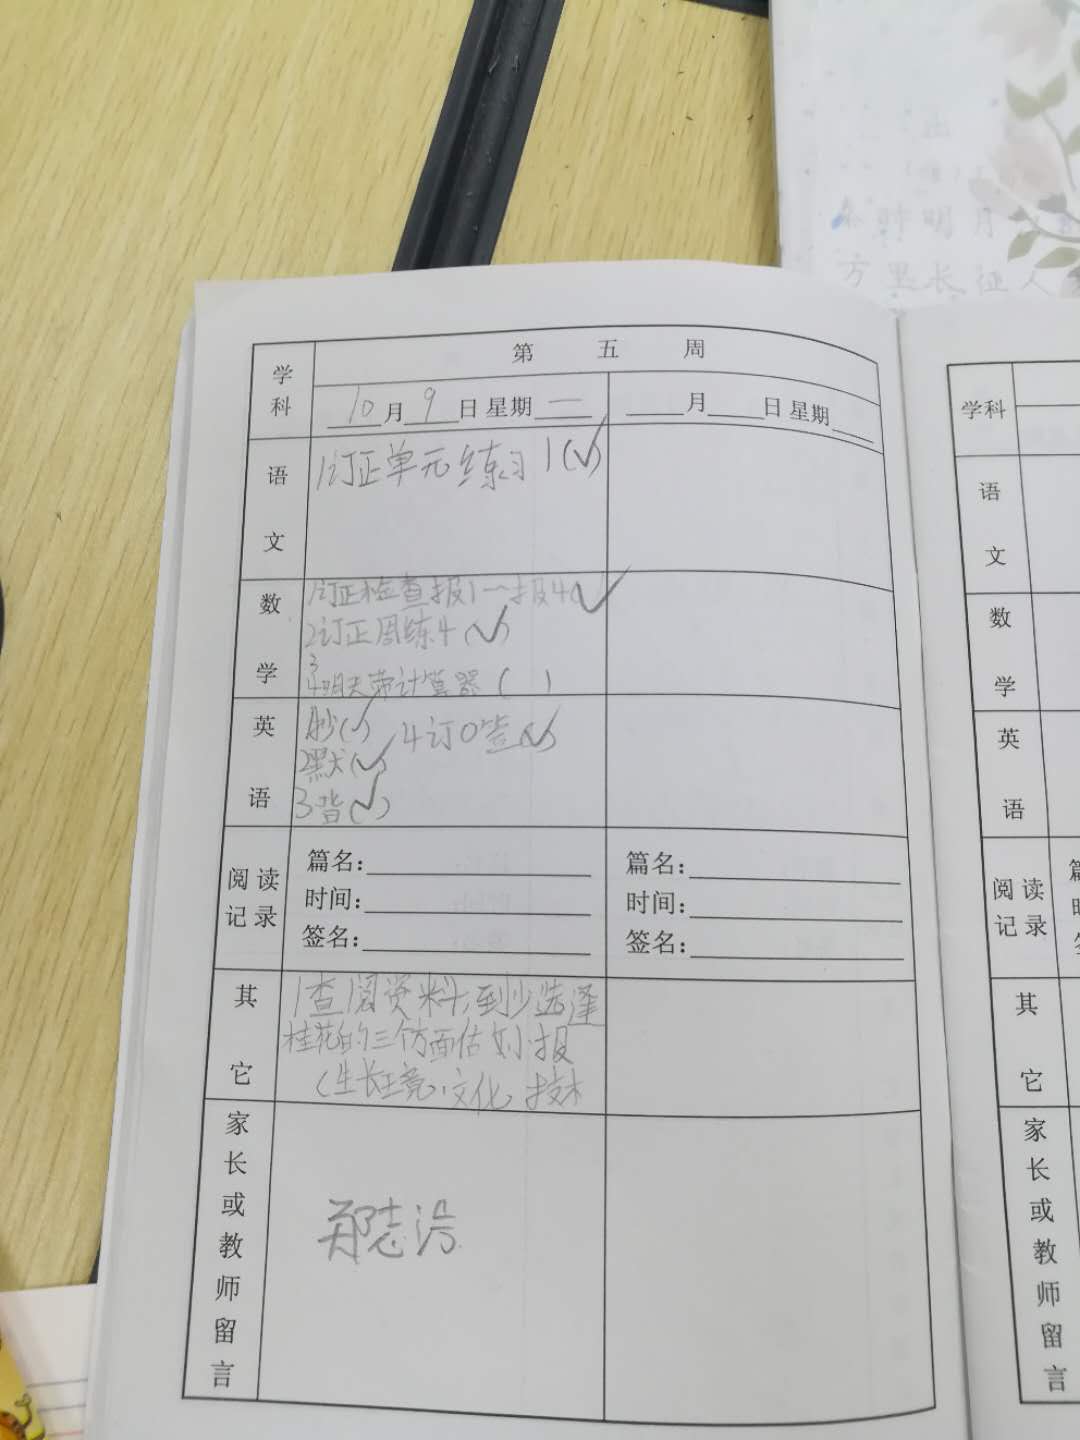 学科
第 五 周
10月9日 星期一
___月___日 星期___
语文
1订正单元练习1(√)
数学
1订正检查报1~报4(√
2订正周练4(√)
3
4明天带计算器( )
英语
抄(√) 4订0签(√)
2默(√)
3背(√)
阅读记录
篇名:
时间:
签名:
篇名:
时间:
签名:
其它
1查阅资料,到少选逢
桂花的三个方面估划报
文化 技术
家长或教师留言
郑志
学科
语文
数学
英语
阅读
记录
其它
家长或教师留言
时明月
长征人